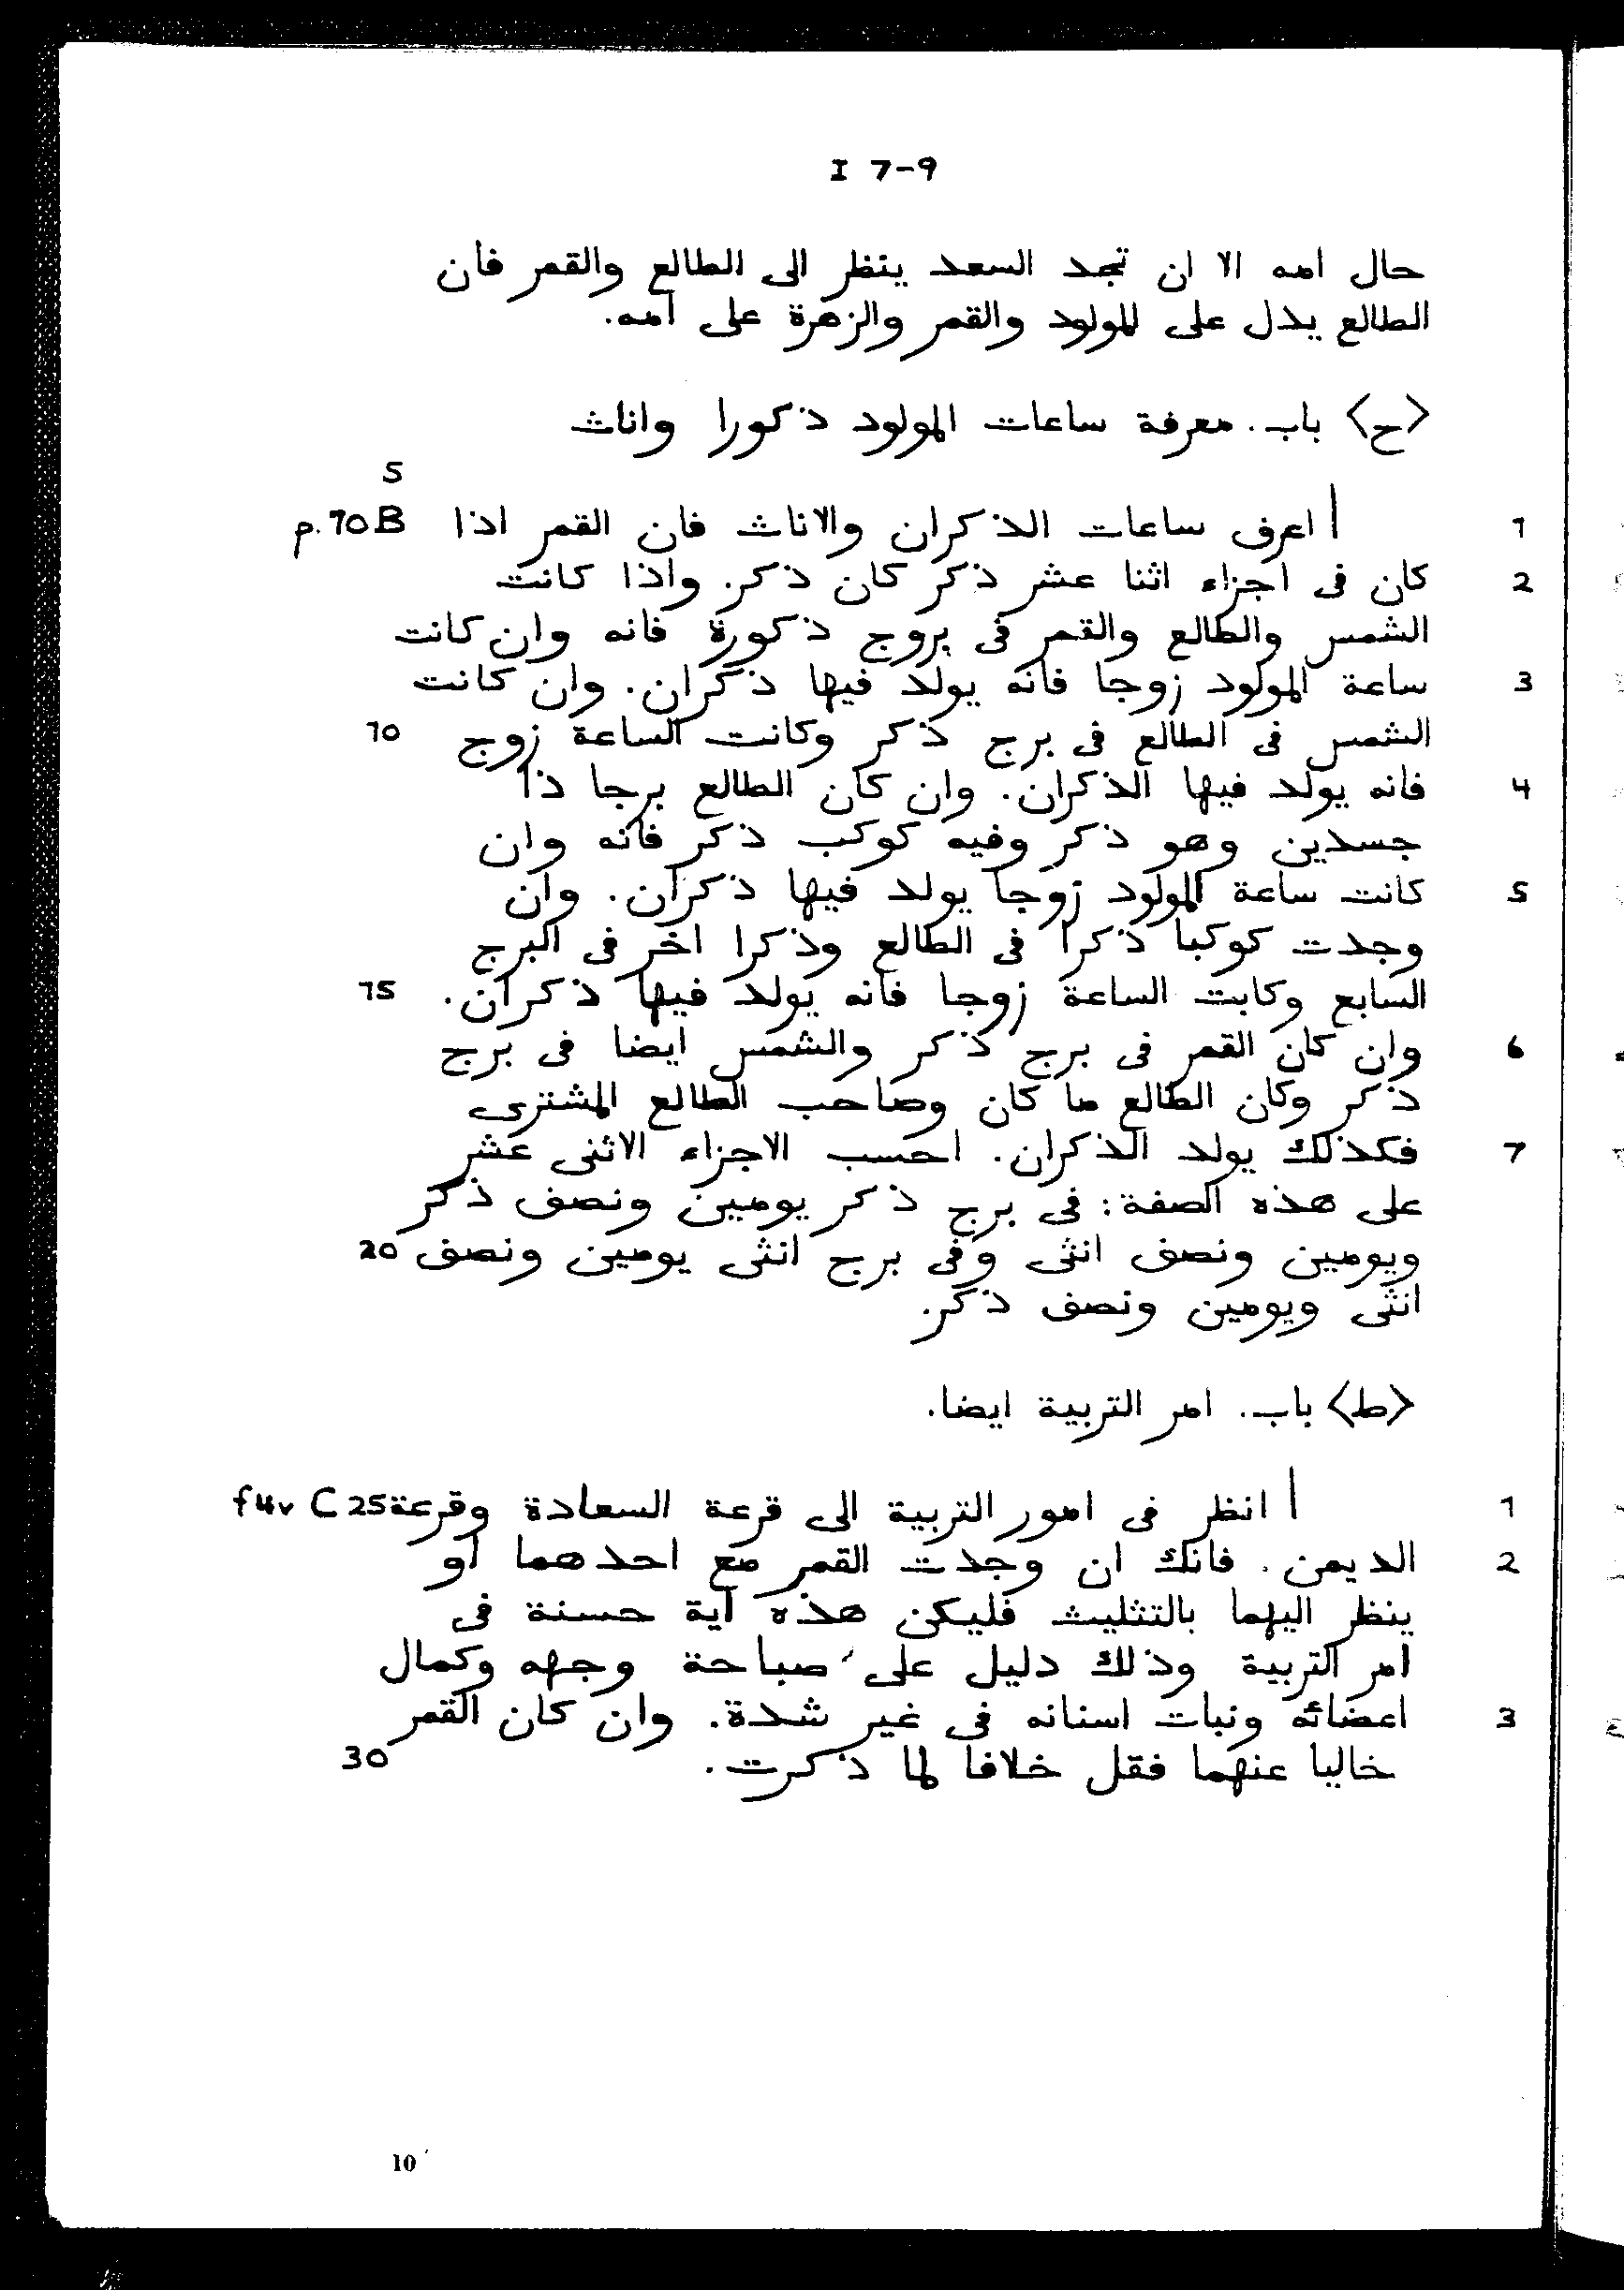 I 7-9
حال امه الا ان تجد السعد ينظر الى الطالع والقمر فان
الطالع يدل على المولود والقمر والزهرة على امه.
<ح> باب. معرفة ساعات المولود ذكورا واناث
5
1 | اعرف ساعات الذكران والاناث فان القمر اذا p.70B
2 كان فى اجزاء اثنا عشر ذكر كان ذكر. واذا كانت
الشمس والطالع والقمر فى بروج ذكورة فانه وان كانت
3 ساعة المولود زوجا فانه يولد فيها ذكران. وان كانت
الشمس فى الطالع فى برج ذكر وكانت الساعة زوج 10
4 فانه يولد فيها الذكران. وان كان الطالع برجا ذا
جسدين وهو ذكر وفيه كوكب ذكر فانه وان
5 كانت ساعة المولود زوجا يولد فيها ذكران. وان
وجدت كوكبا ذكرا فى الطالع وذكرا اخر فى البرج
السابع وكابت الساعة زوجا فانه يولد فيها ذكران. 15
6 وان كان القمر فى برج ذكر والشمس ايضا فى برج
ذكر وكان الطالع ما كان وصاحب الطالع المشترى
7 فكذلك يولد الذكران. احسب الاجزاء الاثنى عشر
على هذه الصفة: فى برج ذكر يومين ونصف ذكر
ويومين ونصف انثى وفى برج انثى يومين ونصف 20
انثى ويومين ونصف ذكر.
<ط> باب. امر التربية ايضا.
1 | انظر فى امور التربية الى قرعة السعادة وقرعة 25 f4v C
2 الديمن. فانك ان وجدت القمر مع احدهما او
ينظر اليهما بالتثليث فليكن هذه آية حسنة فى
امر التربية وذلك دليل على صباحة وجهه وكمال
3 اعضائه ونبات اسنانه فى غير شدة. وان كان القمر
خاليا عنهما فقل خلافا لما ذكرت. 30
10